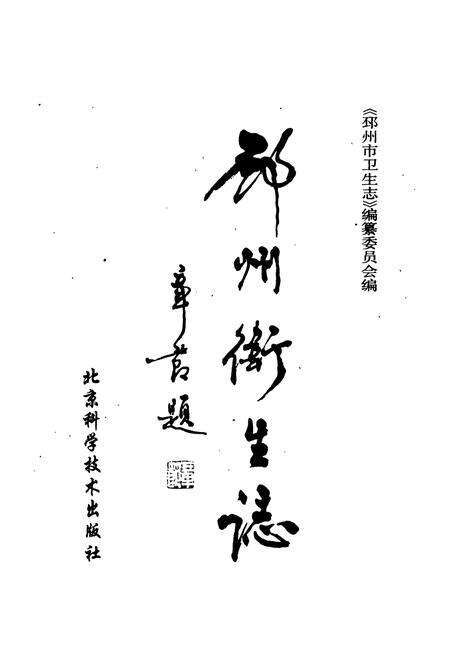 《邳州市卫生志》编纂委员会编
邳州衛生誌
題
北京科学技术出版社